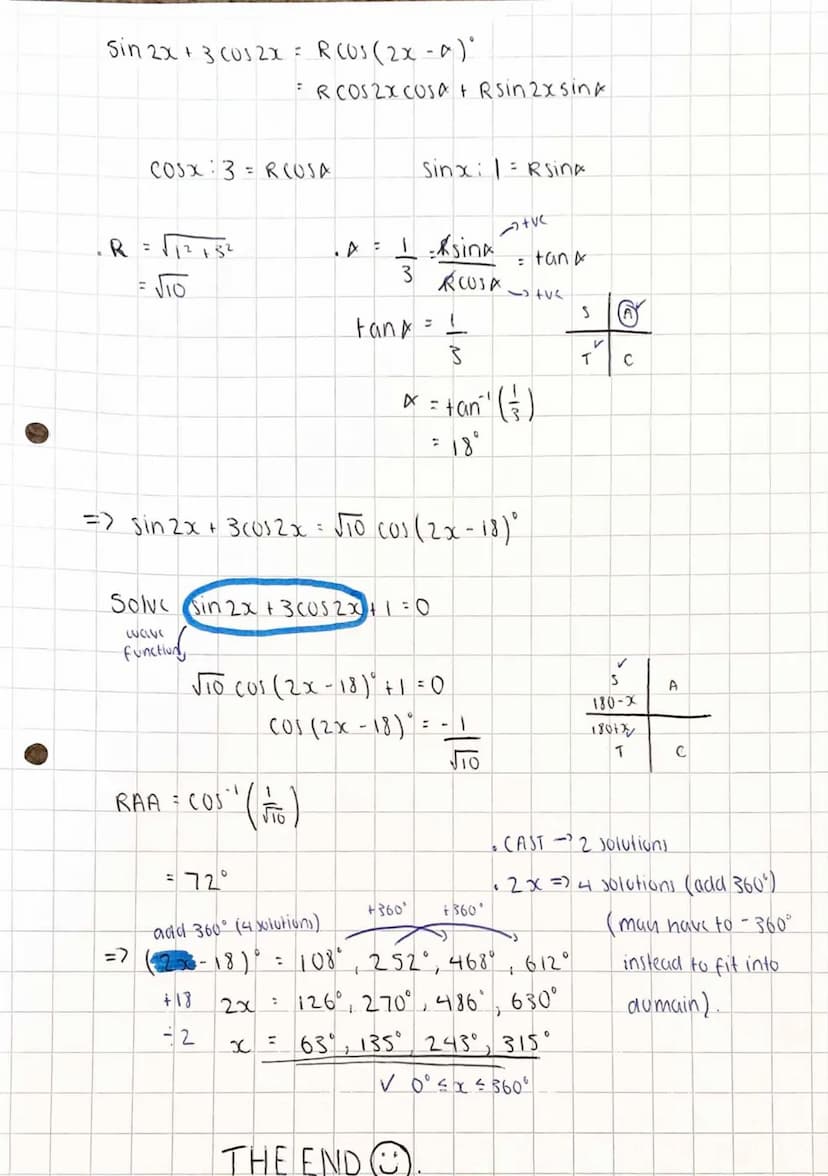 sin2x + 3cos2x = Rcos(2x - α)°
= Rcos2xcosα + Rsin2xsinα
cosx : 3 = Rcosα
sinx : 1 = Rsinα
. R = √1² + 3²
= √10
. α = 1/3 = Rsinα/Rcosα = tanα
→ +ve
→ +ve
tanα = 1/3
S A✓
T✓ C
α = tan⁻¹(1/3)
= 18°
=> sin2x + 3cos2x = √10 cos(2x - 18)°
Solve sin2x + 3cos2x + 1 = 0
wave
function
√10 cos(2x - 18)° + 1 = 0
cos(2x - 18)° = -1/√10
✓
S A
180-x
180+x ✓
T C
RAA = cos⁻¹(1/√10)
= 72°
. CAST → 2 solutions
. 2x => 4 solutions (add 360°)
(may have to - 360°
instead to fit into
domain).
add 360° (4 solutions)
+360° +360°
=> (2x - 18)° = 108°, 252°, 468°, 612°
+18 2x = 126°, 270°, 486°, 630°
÷2 x = 63°, 135°, 243°, 315°
✓ 0° ≤ x ≤ 360°
THE END ☺.